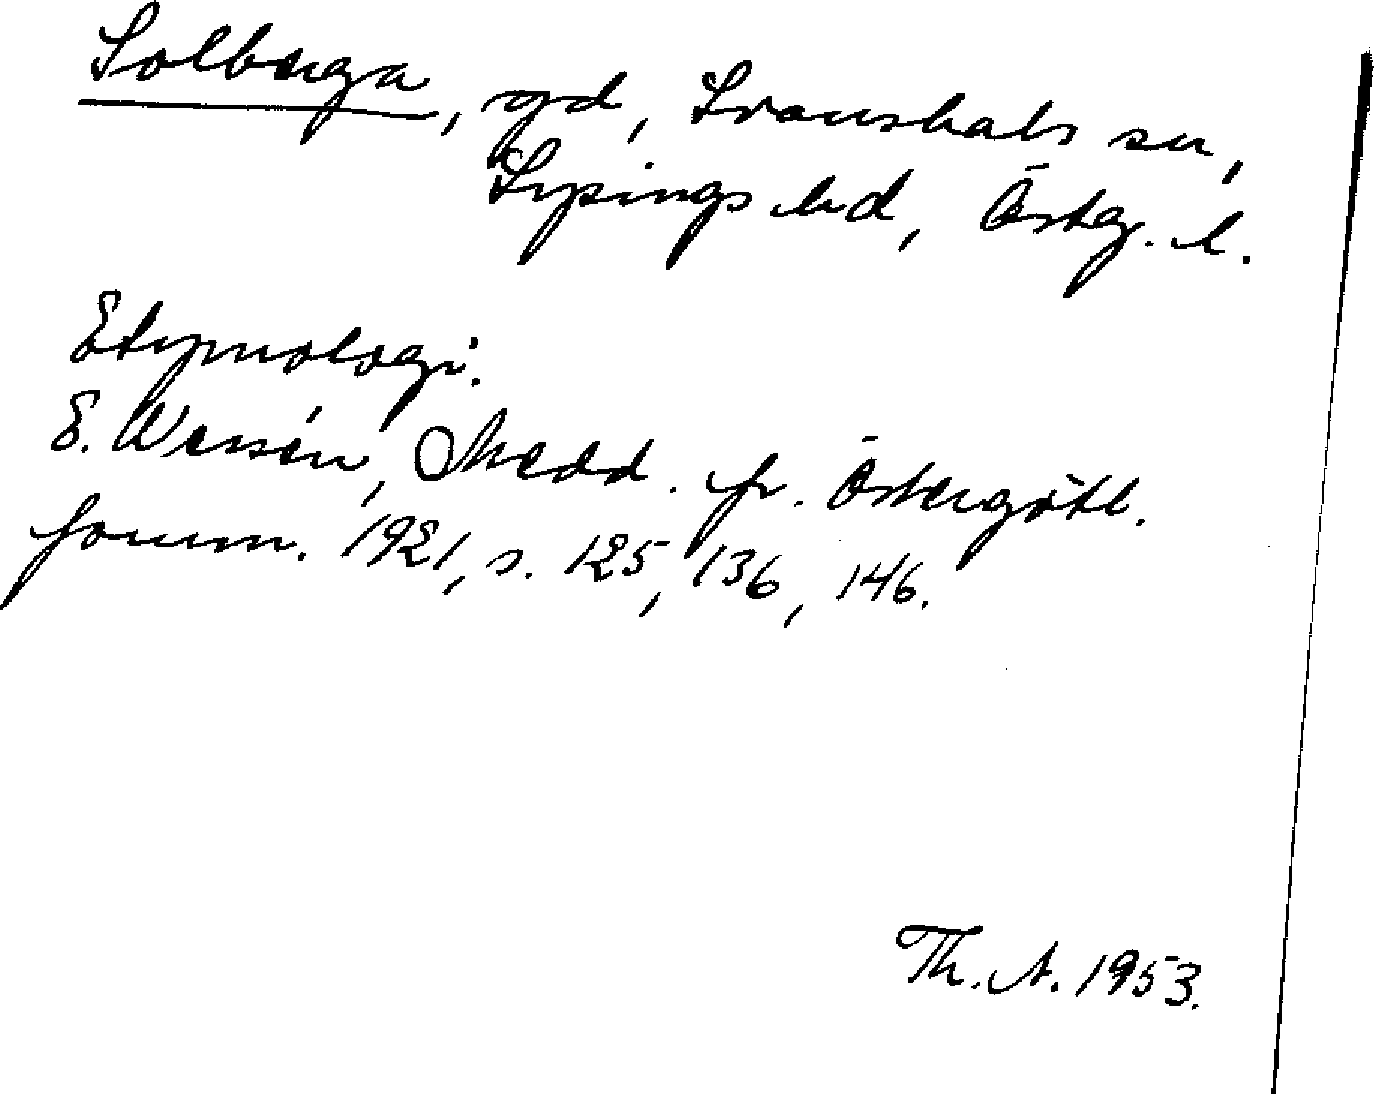 Solberga, gd, Svanshals sn,
Lysings hd, Östg. l.
Etymologi.
E. Wessén, Medd. fr. Östergötl.
fornm. 1921, s. 125, 136, 146.
Th. A. 1953.